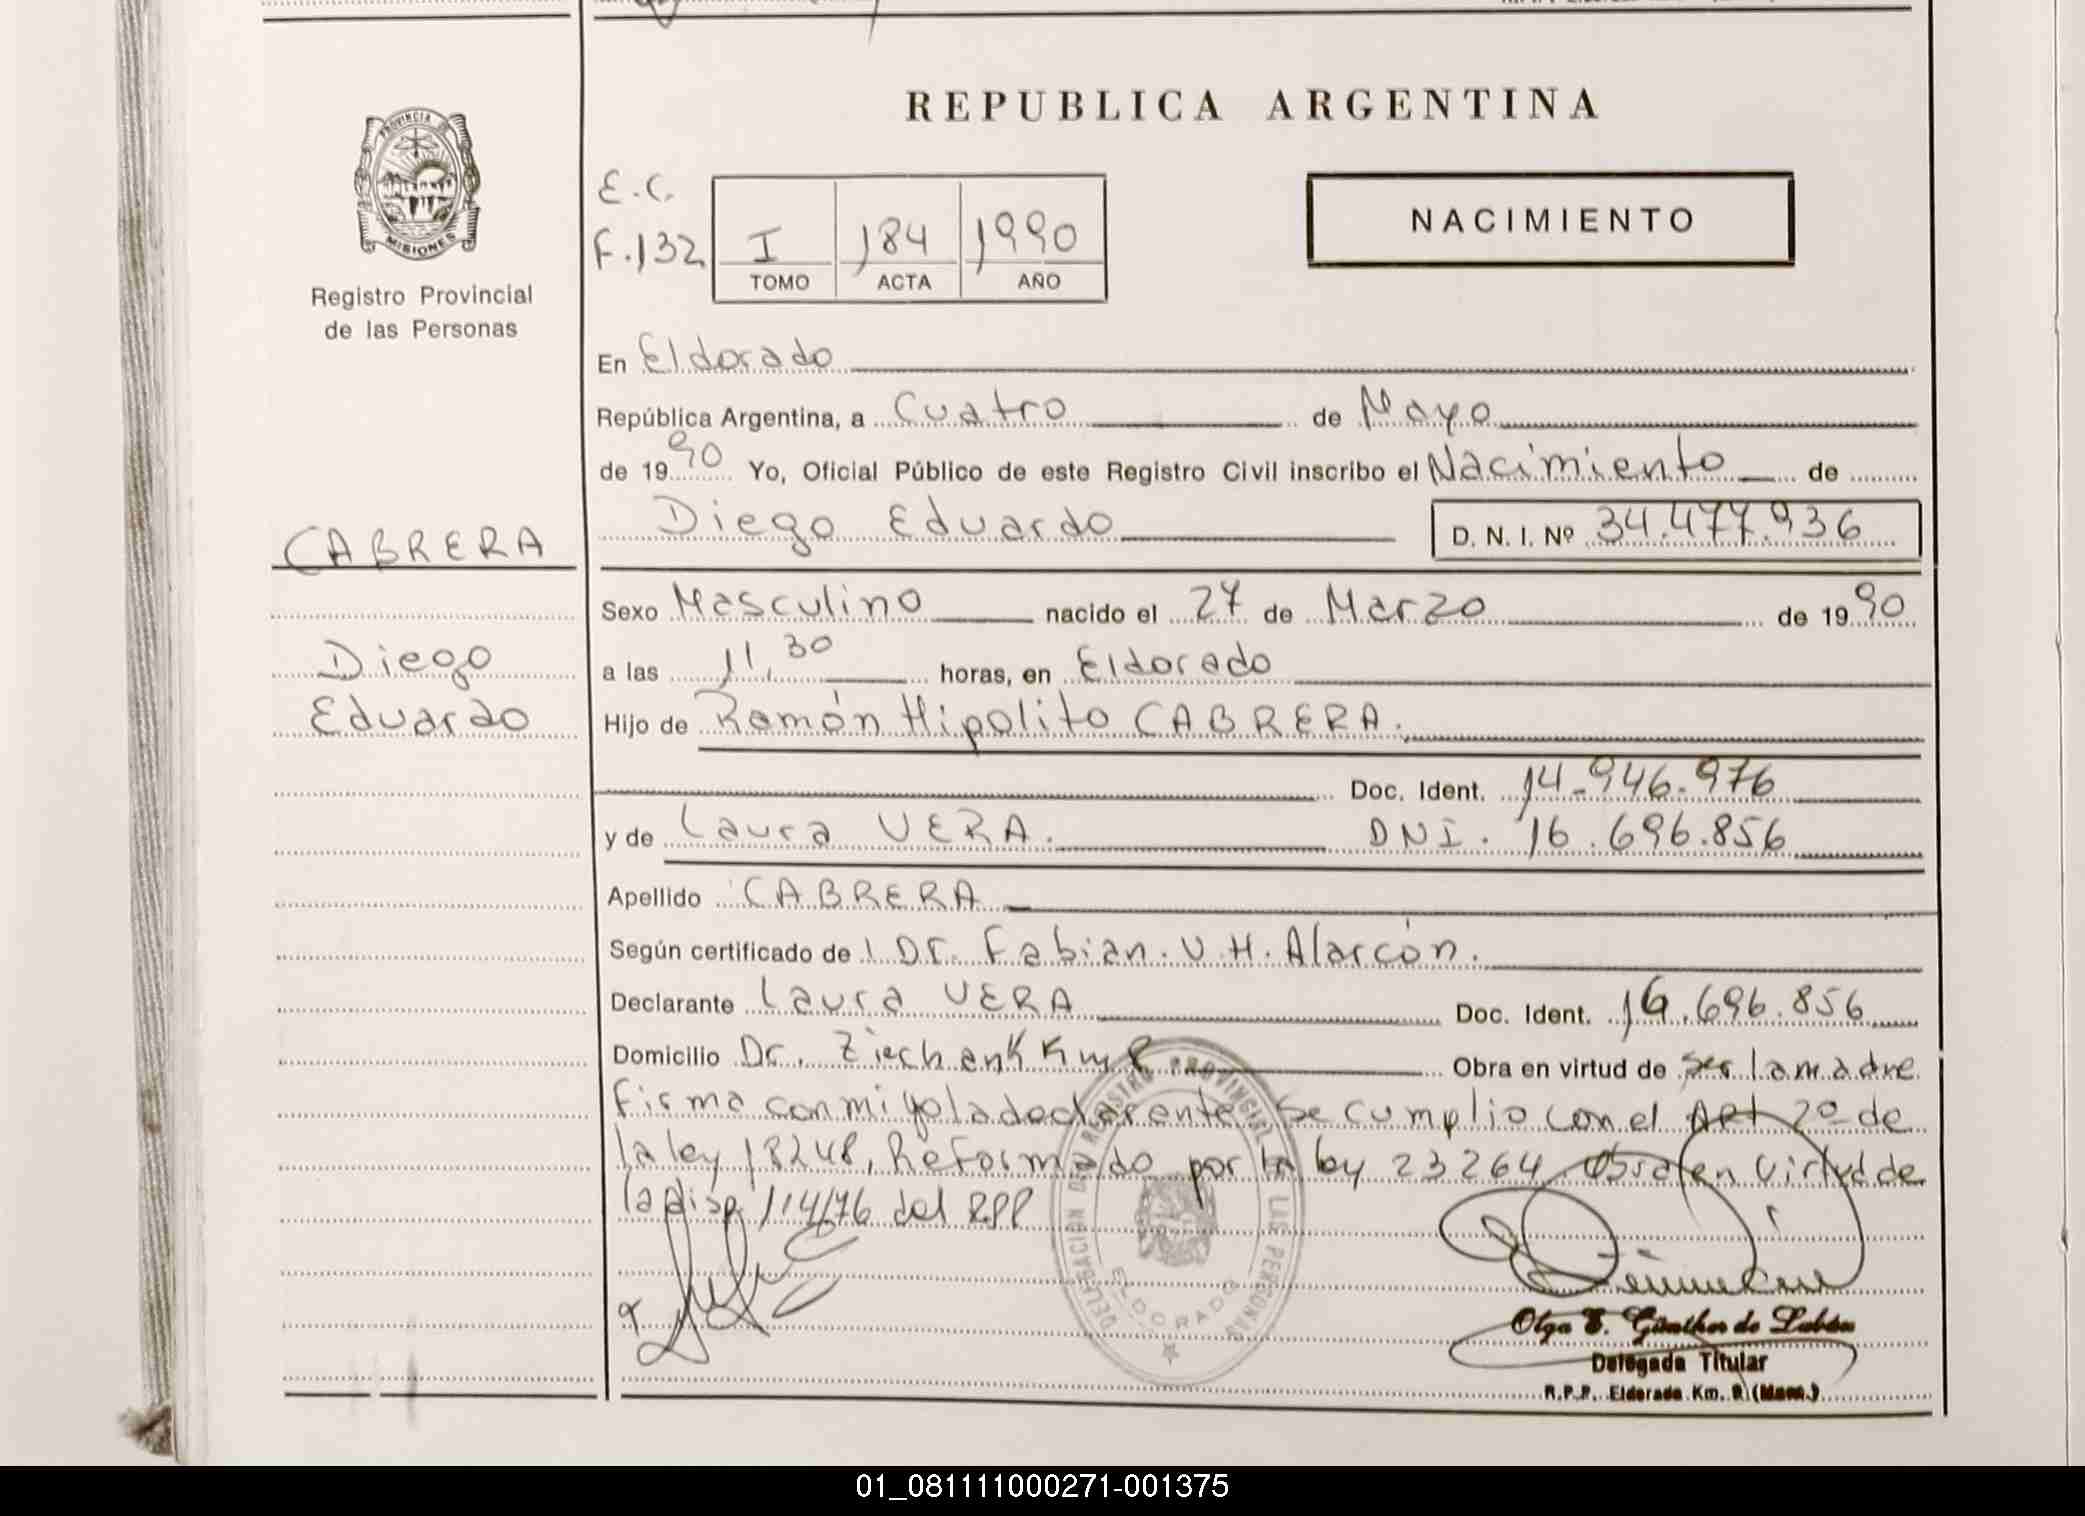 REPUBLICA ARGENTINA
PROVINCIA DE
MISIONES
Registro Provincial
de las Personas
E.C.
F.132
I 184 1990
TOMO ACTA AÑO
NACIMIENTO
En Eldorado
República Argentina, a Cuatro de Mayo
de 1990 Yo, Oficial Público de este Registro Civil inscribo el Nacimiento de
Diego Eduardo D. N. I. Nº 34.477.936
CABRERA
Diego
Eduardo
Sexo Masculino nacido el 27 de Marzo de 1990
a las 11,30 horas, en Eldorado
Hijo de Ramón Hipolito CABRERA.
Doc. Ident. 14.946.976
y de Laura VERA. DNI. 16.696.856
Apellido CABRERA
Según certificado de Dr. Fabian. V. H. Alarcón.
Declarante Laura VERA Doc. Ident. 16.696.856
Domicilio Dr. Ziechank Km Obra en virtud de ser la madre
Firma conmigo la declarente Se cumplio con el Art 2º de
la ley 18248, Reformado por la ley 23264 Obra en Virtud de
la disp 114/76 del RPP
DELEGACION DEL REGISTRO PROVINCIAL DE LAS PERSONAS
ELDORADO
Olga E. Günther de Lubán
Delegada Titular
R.P.P. Eldorado Km. 9 (Mnes.)
01_081111000271-001375